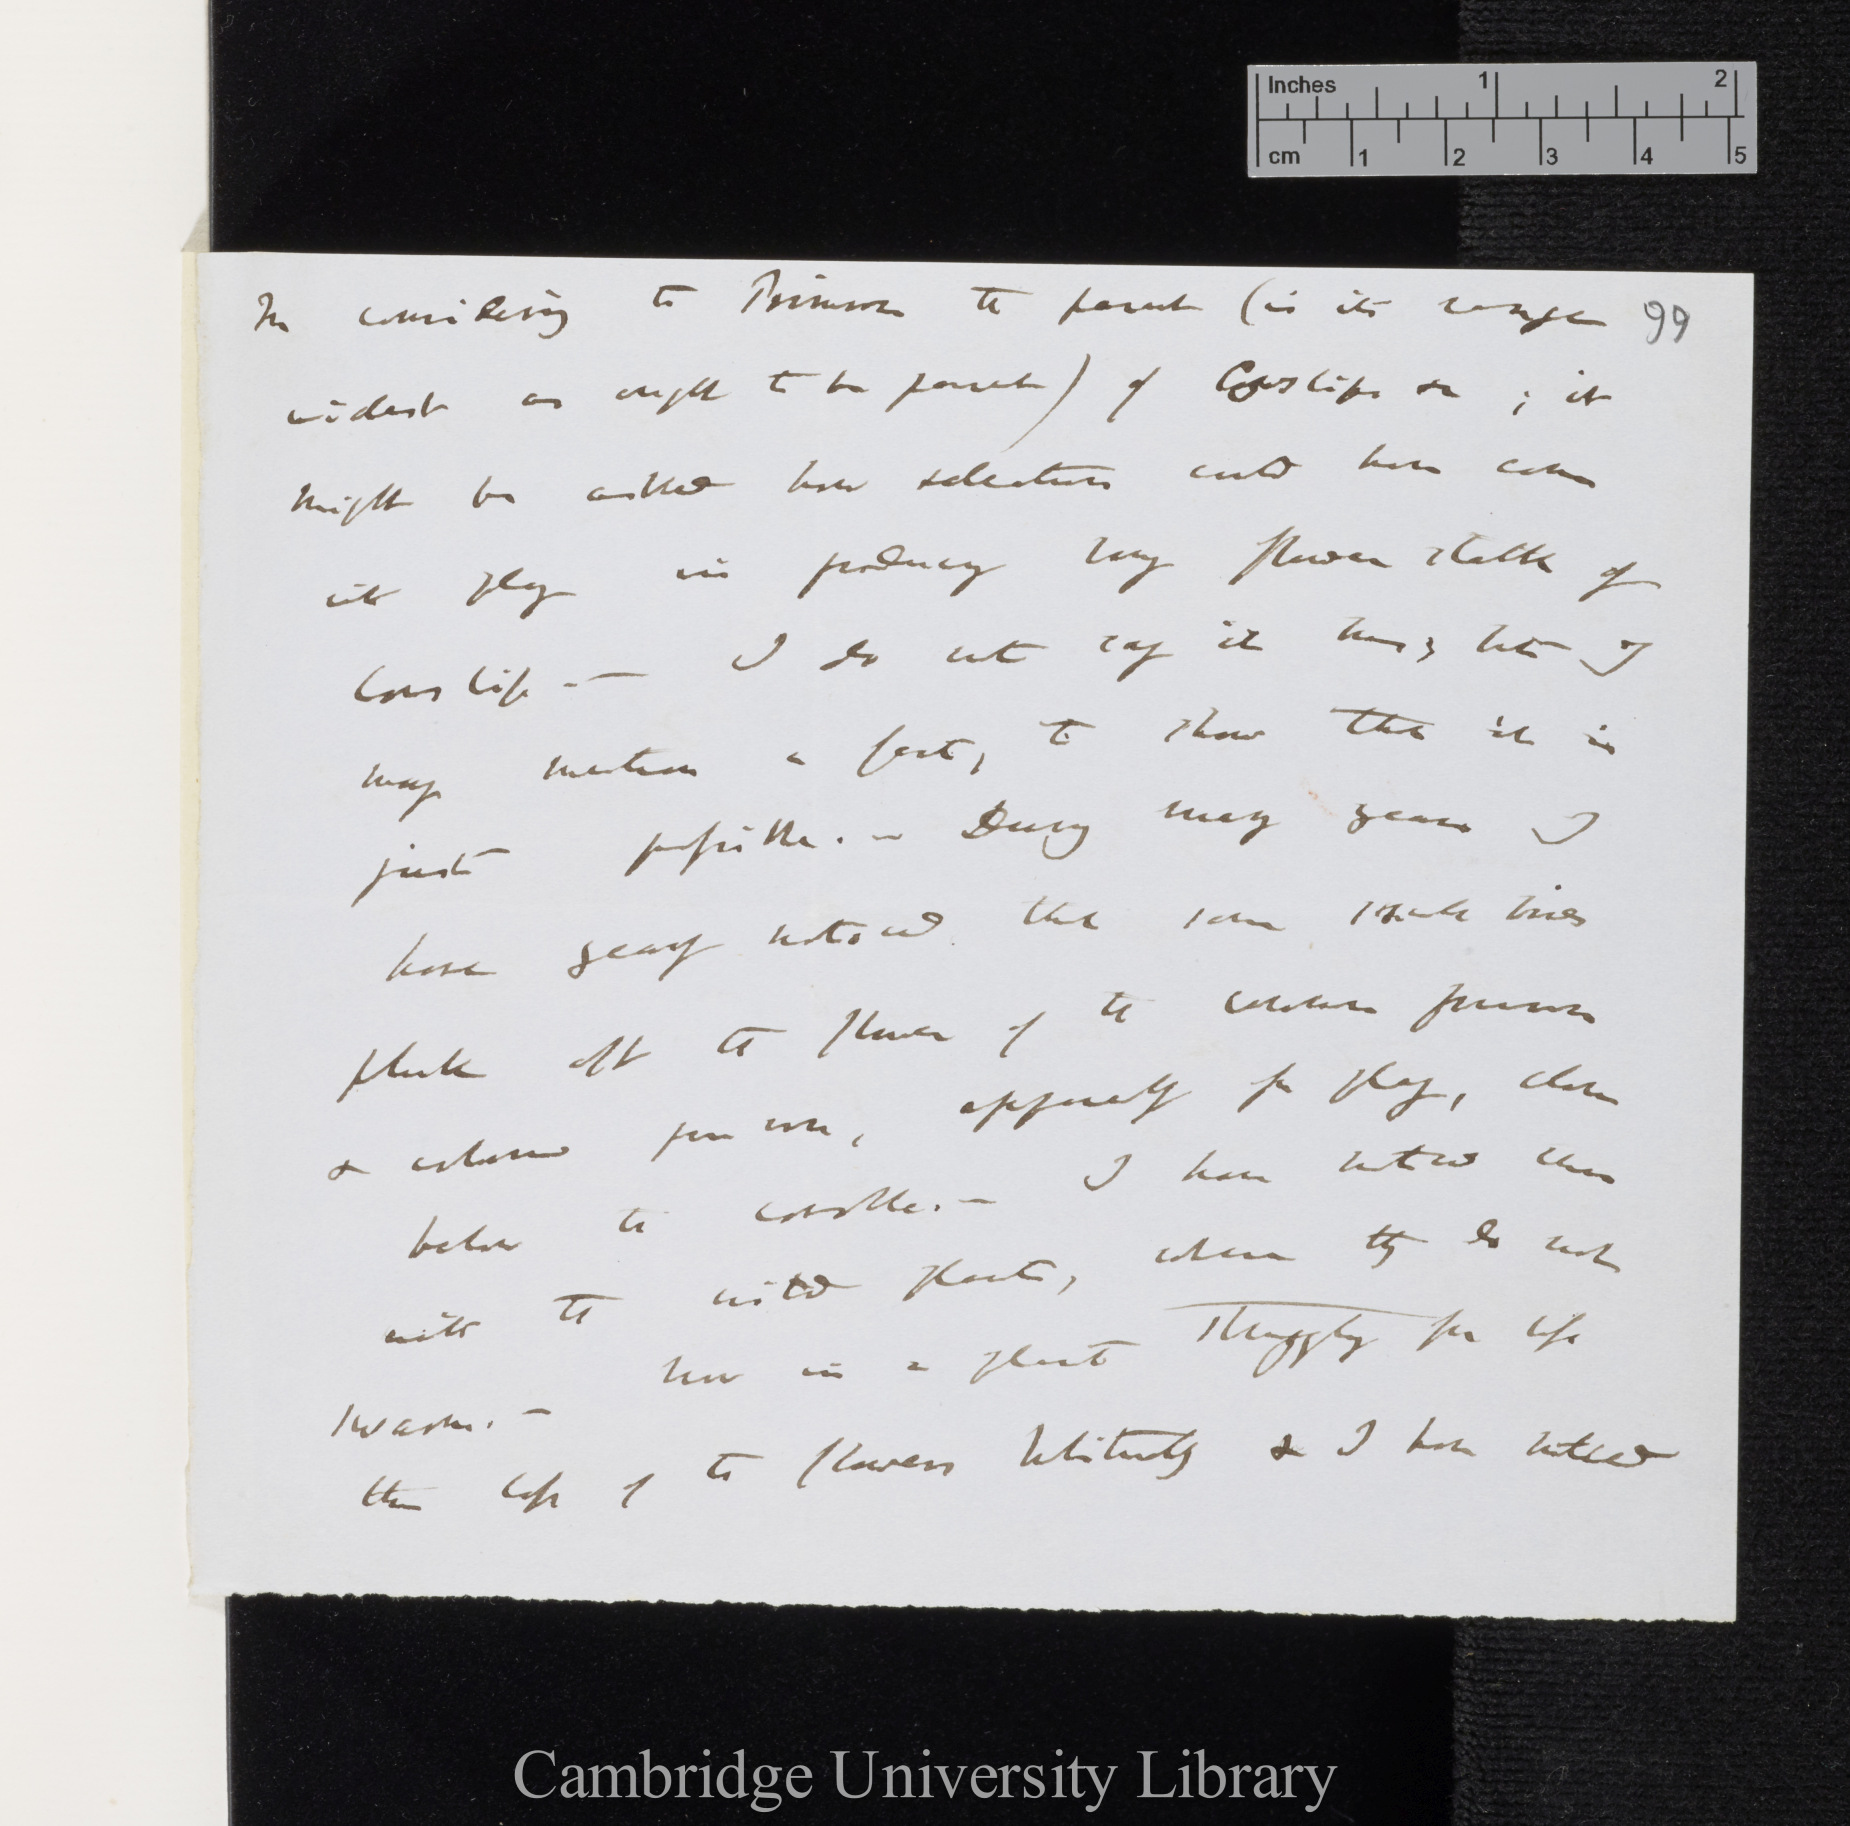 Inches 1 2
cm 1 2 3 4 5
99
In considering the Primrose the parent (is its range
widest as ought to be parent) of Cowslip &c ; it
might be asked how selection could have come
into play in producing long flower stalk of
Cowslip. — I do not say it has; but I
may mention a fact, to show that it is
just possible. — During many years I
have yearly noticed that some small birds
pluck off the flower of the common primrose
& coloured primrose, apparently for play, close
below the corolla. — I have noticed this
with the wild plants, where they do not
swarm. — Now in a plant struggling for life
the loss of the flowers habitually & I have noticed
Cambridge University Library